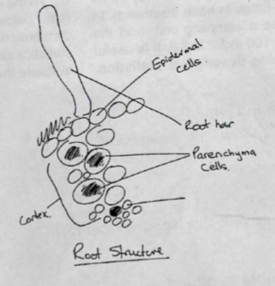 Epidermal
cells.
Root hair
Parenchyma
Cells.
Cortex
Root Structure